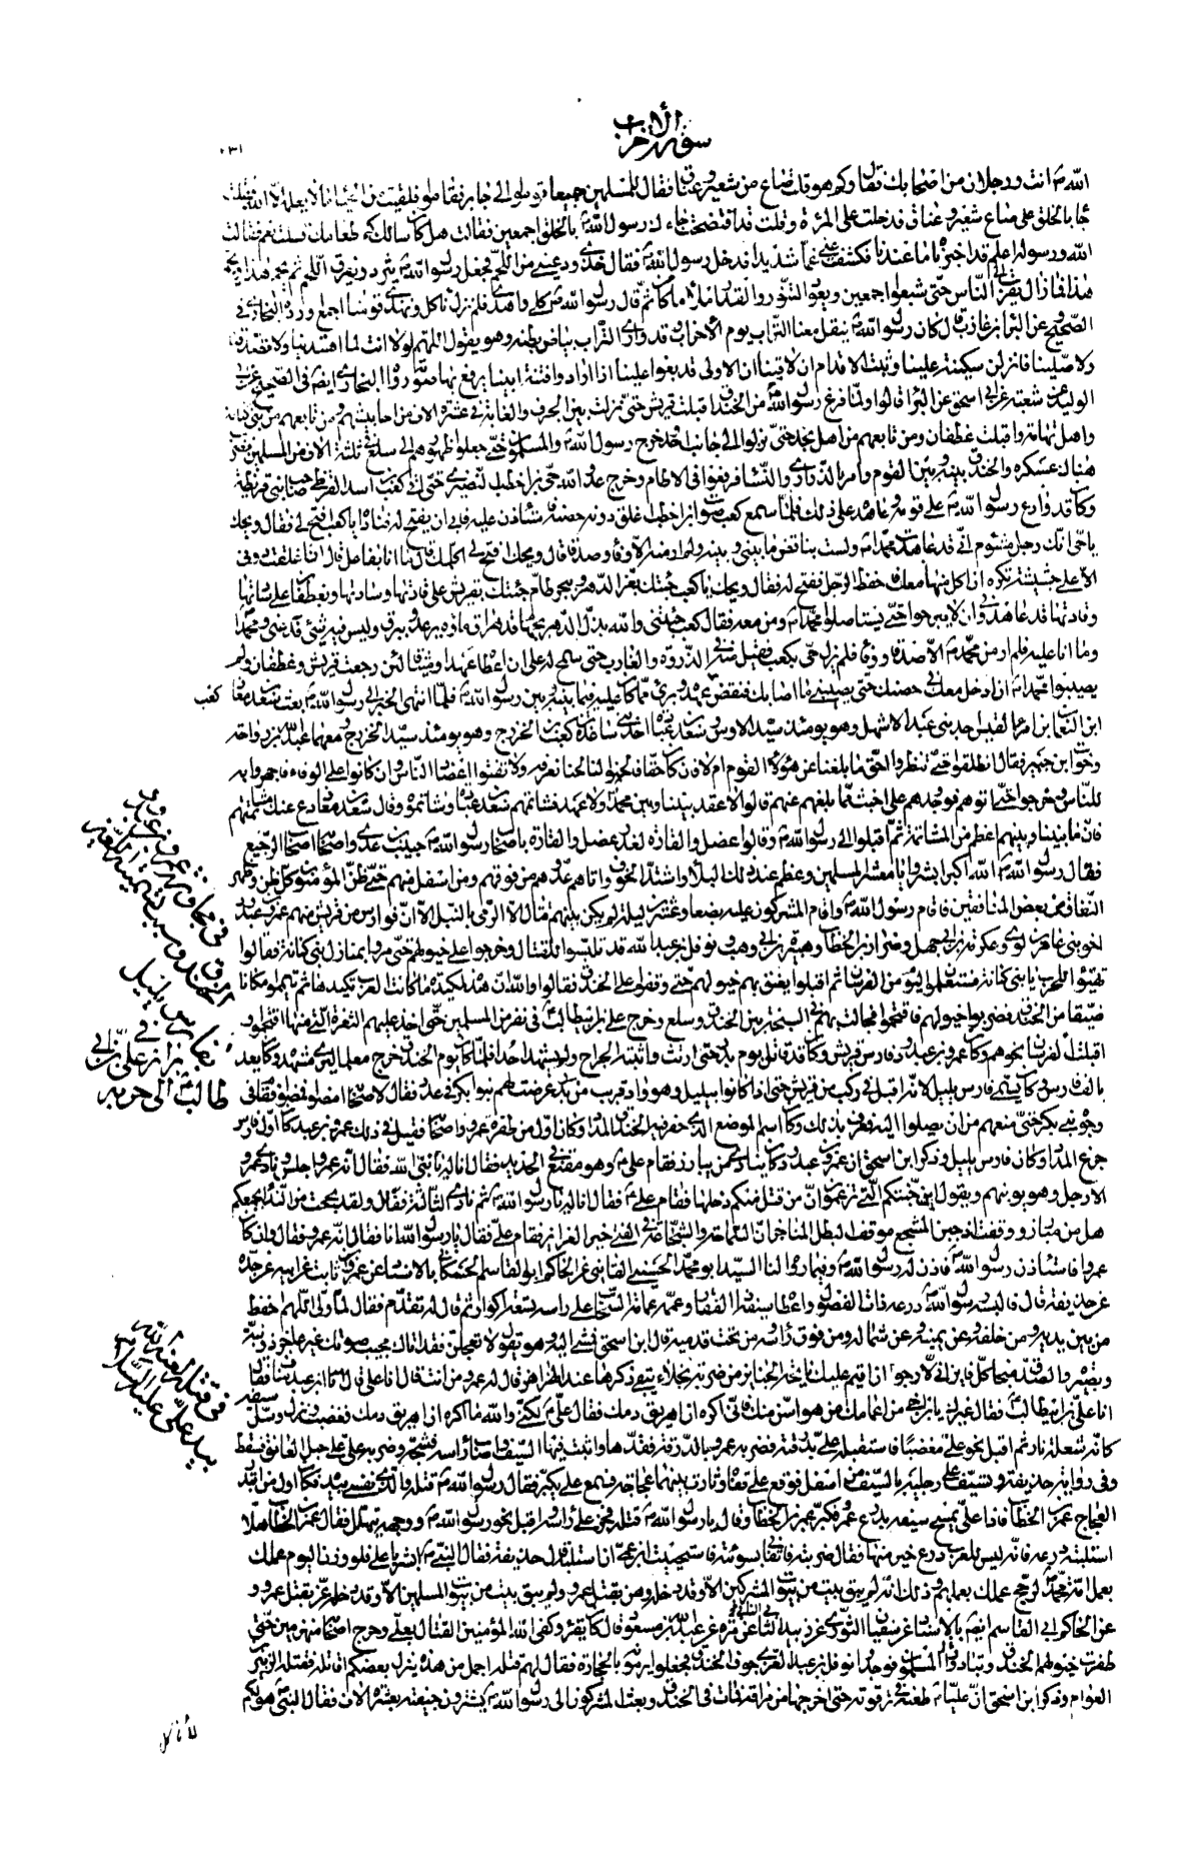 سورة الأحزاب
٢٣١
الله ص انت ورجلان من اصحابك فقال وكم هو قلت صاع من شعير وعناق فقال للمسلمين جميعا قوموا الى جابر فقاموا فلقيت من الحياء ما لا يعلمه الا الله فقلت
جاء بالخلق على صاع شعير وعناق فدخلت على المرأة وقلت قد افتضحت جاءك رسول الله ص بالخلق اجمعين فقالت هل كان سالك كم طعامك قلت نعم فقالت
الله ورسوله اعلم قد اخبرناه ما عندنا فكشفت عني غما شديدا فدخل رسول الله ص فقال خذي ودعيني من اللحم فجعل رسول الله ص يثرد ويفرق اللحم ثم يجم هذا ويجم
هذا فما زال يقرب الى الناس حتى شبعوا اجمعين ويعود التنور والقدر املأ ما كانا ثم قال رسول الله ص كلي واهدي فلم نزل ناكل ونهدي قومنا اجمع اورده البخاري في
الصحيح وعن البراء بن عازب قال كان رسول الله ص ينقل معنا التراب يوم الاحزاب وقد وارى التراب بياض بطنه وهو يقول اللهم لولا انت لما اهتدينا ولا تصدقنا
ولا صلينا فانزلن سكينة علينا وثبت الاقدام ان لاقينا ان الاولى قد بغوا علينا اذا ارادوا فتنة ابينا يرفع بها صوته رواه البخاري ايضا في الصحيح عن ابي
الوليد عن شعبة عن ابي اسحق عن البراء قالوا ولما فرغ رسول الله ص من الخندق اقبلت قريش حتى نزلت بين الجرف والغابة في عشرة الاف من احابيشهم ومن تابعهم من بني كنانة
واهل تهامة واقبلت غطفان ومن تابعهم من اهل نجد حتى نزلوا الى جانب احد وخرج رسول الله ص والمسلمون حتى جعلوا ظهورهم الى سلع في ثلثة الاف من المسلمين فضرب
هناك عسكره والخندق بينه وبين القوم وامر بالذراري والنساء فرفعوا في الاطام وخرج عدو الله حيي بن اخطب النضيري حتى اتى كعب بن اسد القرظي صاحب بني قريظة
وكان قد وادع رسول الله ص على قومه وعاهده على ذلك فلما سمع كعب صوت ابن اخطب اغلق دونه حصنه فاستأذن عليه فابى ان يفتح له فناداه يا كعب افتح لي فقال ويحك
يا حيي انك رجل مشئوم اني قد عاهدت محمدا ص ولست بناقض ما بيني وبينه ولم ار منه الا وفاء وصدقا قال ويحك افتح لي اكلمك قال ما انا بفاعل قال ان اغلقت دوني
الا على جشيشة تكره ان اكل منها معك فاحفظ الرجل ففتح له فقال ويحك يا كعب جئتك بعز الدهر وببحر طام جئتك بقريش على قادتها وسادتها وبغطفان على سادتها
وقادتها قد عاهدوني ان لا يبرحوا حتى يستاصلوا محمدا ص ومن معه فقال كعب جئتني والله بذل الدهر بجهام قد هراق ماءه يرعد ويبرق وليس فيه شئ فدعني ومحمدا
وما انا عليه فلم ار من محمد ص الا صدقا ووفاء فلم يزل حيي بكعب يفتل منه في الذروة والغارب حتى سمح له على ان اعطاه عهدا وميثاقا لئن رجعت قريش وغطفان ولم
يصيبوا محمدا ص ان ادخل معك في حصنك حتى يصيبني ما اصابك فنقض كعب عهده وبرئ مما كان عليه فيما بينه وبين رسول الله ص فلما انتهى الخبر الى رسول الله ص بعث سعد بن معاذ
ابن النعمان بن امرء القيس احد بني عبد الاشهل وهو يومئذ سيد الاوس وسعد بن عبادة احد بني ساعدة بن كعب بن الخزرج وهو يومئذ سيد الخزرج معهما عبد الله بن رواحة
وخوات بن جبير فقال انطلقوا حتى تنظروا احق ما بلغنا عن هؤلاء القوم ام لا فان كان حقا فالحنوا لنا لحنا نعرفه ولا تفتوا اعضاد الناس وان كانوا على الوفاء فاجهروا به
للناس وخرجوا حتى اتوهم فوجدوهم على اخبث مما بلغهم عنهم قالوا لا عقد بيننا وبين محمد ولا عهد فشاتمهم سعد بن عبادة وشاتموه وقال سعد بن معاذ دع عنك مشاتمتهم
فان ما بيننا وبينهم اعظم من المشاتمة ثم اقبلوا الى رسول الله ص وقالوا عضل والقارة لغدر عضل والقارة باصحاب رسول الله ص خبيب بن عدي واصحابه اصحاب الرجيع
فقال رسول الله ص الله اكبر ابشروا يا معشر المسلمين وعظم عند ذلك البلاء واشتد الخوف واتاهم عدوهم من فوقهم ومن اسفل منهم حتى ظن المؤمنون كل ظن وظهر
النفاق من بعض المنافقين فاقام رسول الله ص واقام المشركون عليه بضعا وعشرين ليلة لم يكن بينهم قتال الا الرمي بالنبل الا ان فوارس من قريش منهم عمرو بن عبدود
اخو بني عامر بن لوي وعكرمة بن ابي جهل وضرار بن الخطاب وهبيرة بن ابي وهب ونوفل بن عبد الله قد تلبسوا للقتال وخرجوا على خيولهم حتى مروا بمنازل بني كنانة فقالوا
تهيئوا للحرب يا بني كنانة فستعلمون اليوم من الفرسان ثم اقبلوا تعنق بهم خيولهم حتى وقفوا على الخندق فقالوا والله ان هذه لمكيدة ما كانت العرب تكيدها ثم تيمموا مكانا
ضيقا من الخندق فضربوا خيولهم فاقتحموا فجالت بهم في السبخة بين الخندق وسلع وخرج علي بن ابيطالب ع في نفر من المسلمين حتى اخذ عليهم الثغرة التي منها اقتحموا و
اقبلت الفرسان نحوهم وكان عمرو بن عبدود فارس قريش وكان قد قاتل يوم بدر حتى ارتث واثبته الجراح ولم يشهد احدا فلما كان يوم الخندق خرج معلما ليرى مشهده وكان يعد
بالف فارس وكان يسمى فارس يليل لانه اقبل في ركب من قريش حتى اذا كانوا بيليل وهو واد قريب من بدر عرضت لهم بنو بكر في عدد فقال لاصحابه امضوا فمضوا فقام في
وجوه بني بكر حتى منعهم من ان يصلوا اليه فعرف بذلك وكان اسم الموضع الذي حفر فيه الخندق المذاد وكان اول من طفره عمرو واصحابه فقيل في ذلك عمرو بن عبد كان اول فارس
جزع المذاد وكان فارس يليل وذكر ابن اسحق ان عمرو بن عبدود كان ينادي من يبارز فقام علي ع وهو مقنع في الحديد فقال انا له يا نبي الله فقال انه عمرو اجلس ونادى عمرو
الا رجل وهو يؤنبهم ويقول اين جنتكم التي تزعمون ان من قتل منكم دخلها فقام علي ع فقال انا له يا رسول الله ص ثم نادى الثالثة فقال ولقد بححت من النداء بجمعكم
هل من مبارز ووقفت اذ جبن المشجع موقف البطل المناجز ان السماحة والشجاعة في الفتى خير الغرائز فقام علي فقال يا رسول الله انا فقال انه عمرو فقال وان كان
عمروا فاستأذن رسول الله ص فاذن له رسول الله ص وفيما رواه لنا السيد ابو محمد الحسيني القايني عن الحاكم ابي القاسم الحسكاني بالاسناد عن عمرو بن ثابت عن ابيه عن جده
عن حذيفة قال فالبسه رسول الله ص درعه ذات الفضول واعطاه سيفه ذا الفقار وعممه عمامة السحاب على راسه تسعة اكوار ثم قال له تقدم فقال لما ولى اللهم احفظه
من بين يديه ومن خلفه وعن يمينه وعن شماله ومن فوق راسه ومن تحت قدميه قال ابن اسحق فمشى اليه وهو يقول لا تعجلن فقد اتاك مجيب صوتك غير عاجز ذو نية
وبصيرة والصدق منجا كل فايز اني لارجو ان اقيم عليك نايحة الجنايز من ضربة نجلاء يبقى ذكرها عند الهزاهز قال له عمرو من انت قال انا علي قال ابن عبد مناف فقال
انا علي بن ابيطالب ع فقال غيرك يا ابن اخي من اعمامك من هو اسن منك فاني اكره ان اهريق دمك فقال علي ع لكني والله ما اكره ان اهريق دمك فغضب ونزل وسل سيفه
كانه شعلة نار ثم اقبل نحو علي مغضبا فاستقبله علي بدرقته فضربه عمرو بالدرقة فقدها واثبت فيها السيف واصاب راسه فشجه وضربه علي على حبل العاتق فسقط
وفي رواية حذيفة وتسيف علي رجليه بالسيف من اسفل فوقع على قفاه وثارت بينهما عجاجة فسمع علي يكبر فقال رسول الله ص قتله والذي نفسي بيده فكان اول من ابتدر
العجاج عمر بن الخطاب فاذا علي يمسح سيفه بدرع عمرو فكبر عمر بن الخطاب وقال يا رسول الله ص قتله فحز علي راسه واقبل نحو رسول الله ص ووجهه يتهلل فقال عمر بن الخطاب هلا
استلبته درعه فانه ليس للعرب درع خير منها فقال ضربته فاتقاني بسوءته فاستحييت ابن عمي ان استلبه قال حذيفة فقال النبي ص ابشر يا علي فلو وزن اليوم عملك
بعمل امة محمد ص لرجح عملك بعملهم وذلك انه لم يبق بيت من بيوت المشركين الا وقد دخله وهن بقتل عمرو ولم يبق بيت من بيوت المسلمين الا وقد دخله عز بقتل عمرو و
عن الحاكم ابي القاسم ايضا بالاسناد عن سفيان الثوري عن زبيد الثاني عن مرة عن عبد الله بن مسعود قال كان يقرء وكفى الله المؤمنين القتال بعلي وخرج اصحابه منهزمين حتى
طفرت خيولهم الخندق وتبادر المسلمون فوجدوا نوفل بن عبد العزى جوف الخندق فجعلوا يرمونه بالحجارة فقال لهم قتلة اجمل من هذه ينزل بعضكم اقاتله فقتله الزبير بن
العوام وذكر ابن اسحق ان عليا ع طعنه في ترقوته حتى اخرجها من مراقه فمات في الخندق وبعث المشركون الى رسول الله ص يشترون جيفته بعشرة الاف فقال النبي هو لكم
لا ناكل
كعب
في قتل لعنه الله
بيد علي عليه السلام